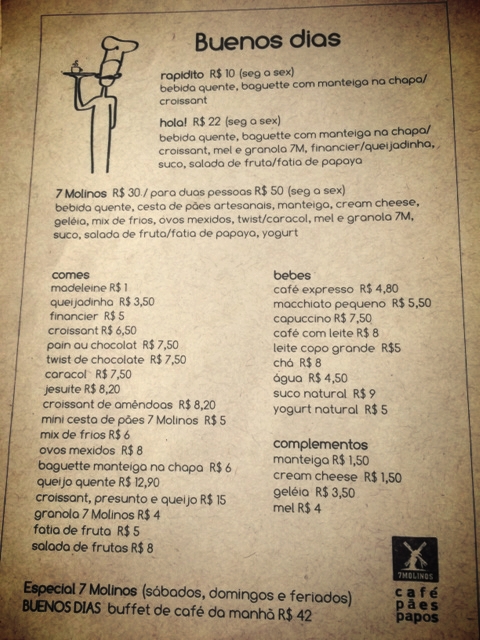 Buenos dias
rapidito R$ 10 (seg a sex)
bebida quente, baguette com manteiga na chapa/
croissant
hola! R$ 22 (seg a sex)
bebida quente, baguette com manteiga na chapa/
croissant, mel e granola 7M, financier/queijadinha,
suco, salada de fruta/fatia de papaya
7 Molinos R$ 30 / para duas pessoas R$ 50 (seg a sex)
bebida quente, cesta de pães artesanais, manteiga, cream cheese,
geléia, mix de frios, ovos mexidos, twist/caracol, mel e granola 7M,
suco, salada de fruta/fatia de papaya, yogurt
comes
madeleine R$ 1
queijadinha R$ 3,50
financier R$ 5
croissant R$ 6,50
pain au chocolat R$ 7,50
twist de chocolate R$ 7,50
caracol R$ 7,50
jesuite R$ 8,20
croissant de amêndoas R$ 8,20
mini cesta de pães 7 Molinos R$ 5
mix de frios R$ 6
ovos mexidos R$ 8
baguette manteiga na chapa R$ 6
queijo quente R$ 12,90
croissant, presunto e queijo R$ 15
granola 7 Molinos R$ 4
fatia de fruta R$ 5
salada de frutas R$ 8
bebes
café expresso R$ 4,80
macchiato pequeno R$ 5,50
capuccino R$ 7,50
café com leite R$ 8
leite copo grande R$5
chá R$ 8
água R$ 4,50
suco natural R$ 9
yogurt natural R$ 5
complementos
manteiga R$ 1,50
cream cheese R$ 1,50
geléia R$ 3,50
mel R$ 4
Especial 7 Molinos (sábados, domingos e feriados)
BUENOS DIAS buffet de café da manhã R$ 42
7MOLINOS
café
pães
papos